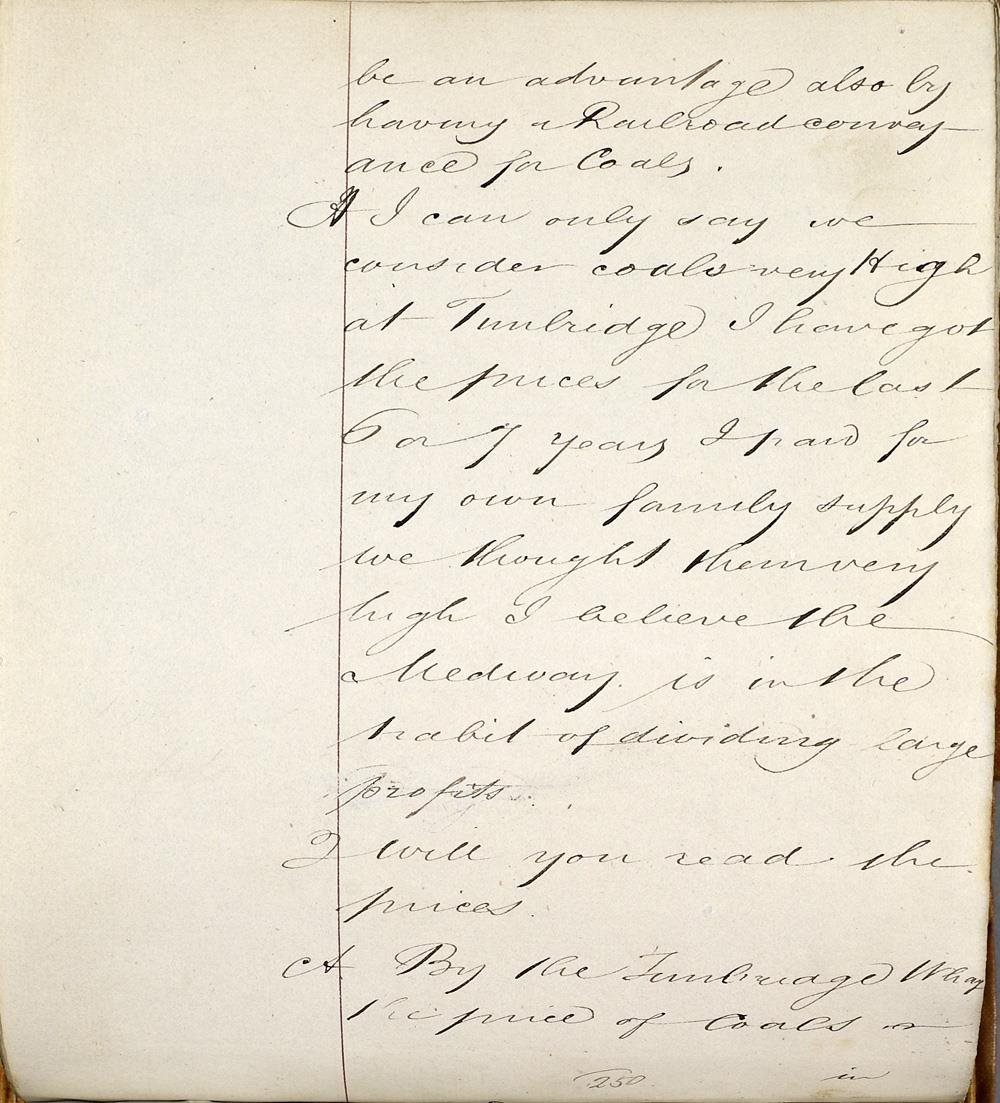 be an advantage also by
having a Railroad convey-
ance for Coals.
A I can only say we
consider coals very High
at Tunbridge I have got
the prices for the last
6 or 7 years I paid for
my own family supply
we thought them very
high I believe the
Medway is in the
habit of dividing large
profits.
Q Will you read the
prices.
A. By the Tunbridge Whay
the price of Coals
250 in